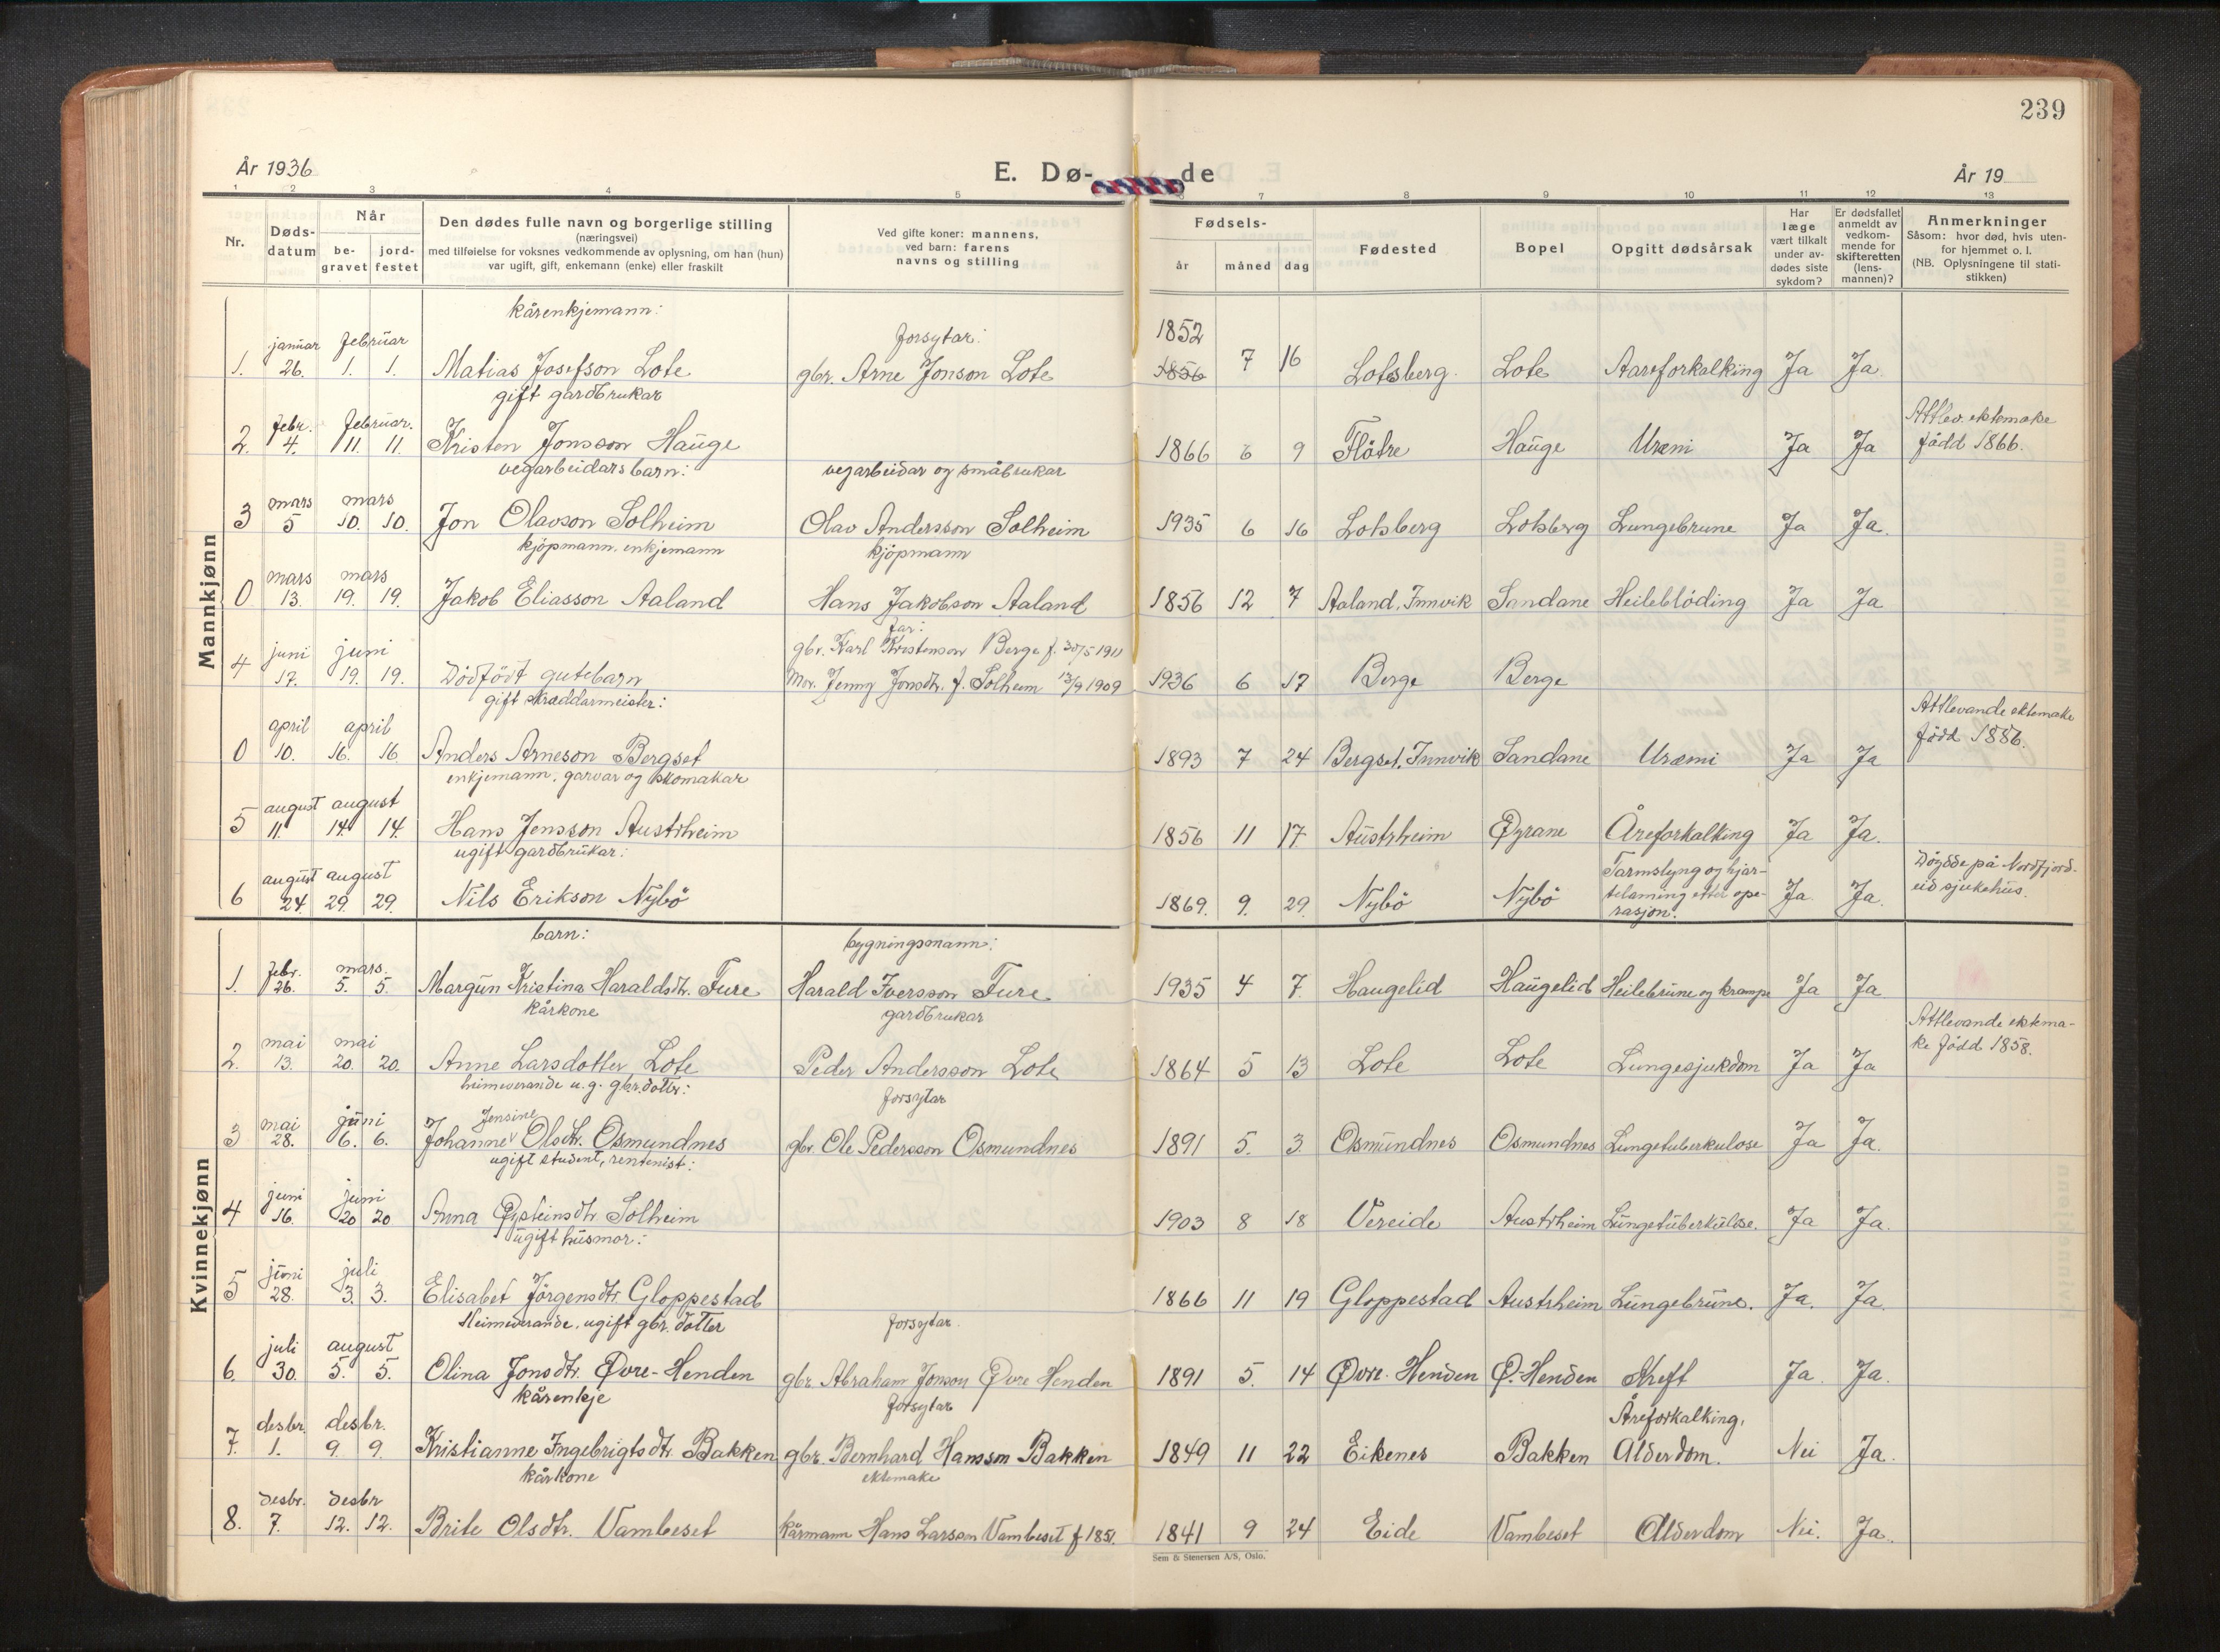 239
År 1936
E. Dø-
de
År 19
1 2 3 4 5 6 7 8 9 10 11 12 13
Nr.
Døds-
datum
Når
be-
gravet
jord-
festet
Den dødes fulle navn og borgerlige stilling
(næringsvei)
med tilføielse for voksnes vedkommende av oplysning, om han (hun)
var ugift, gift, enkemann (enke) eller fraskilt
Ved gifte koner: mannens,
ved barn: farens
navns og stilling
Fødsels-
år måned dag
Fødested
Bopel
Opgitt dødsårsak
Har
læge
vært tilkalt
under av-
dødes siste
sykdom?
Er dødsfallet
anmeldt av
vedkom-
mende for
skifteretten
(lens-
mannen)?
Anmerkninger
Såsom: hvor død, hvis uten-
for hjemmet o. l.
(NB. Oplysningene til stati-
stikken)
Mannkjønn
kårenkjemann:
januar februar forsytar: 1852
1. 26. 1. 1. Matias Josefson Lote gbr. Arne Jonson Lote 1856 7 16 Lotsberg Lote Aareforkalking Ja Ja.
gift gardbrukar
febr. februar. Attlev. ektemake
2. 4. 11. 11. Kristen Jonsson Hauge 1866 6 9 Flåtre Hauge Uræmi Ja Ja født 1866.
vegarbeidars barn: vegarbeidar og småbrukar
mars mars
3 5 10. 10. Jon Olavson Solheim Olav Andersson Solheim 1935 6 16 Lotsberg Lotsberg Lungebrune Ja Ja.
kjøpmann, enkjemann kjøpmann
mars mars
0 13. 19. 19. Jakob Eliasson Aaland Hans Jakobson Aaland 1856 12 7 Aaland, Innvik Sandane Heileblöding Ja Ja
far:
juni juni gbr. Karl Kristenson Berge f. 30/5 1911
4 17. 19. 19. Dödfödt gutebarn Mor. Jenny Jonsdtr. f. Solheim 13/9 1909 1936 6 17 Berge Berge
gift skreddarmeister:
april april Attlevande ektemake
0 10. 16. 16 Anders Arneson Bergset 1893 7 24 Bergset, Innvik Sandane Uræmi Ja Ja född 1886.
enkjemann, garvar og skomakar
august august
5 11. 14. 14. Hans Jensson Austrheim 1856 11 17 Austrheim Øyrane Åreforkalking Ja Ja.
ugift gardbrukar: Tarmslyng og hjar-
august august telaming etter ope- Döydde på Nordfjord-
6 24. 29. 29. Nils Erikson Nybö 1869. 9. 29. Nybö Nybö rasjon. Ja. Ja. eid sjukehus.
Kvinnekjønn
barn: bygningsmann:
febr. mars.
1. 26. 5. 5. Margun Kristina Haraldsdtr. Fure Harald Iversson Fure 1935 4 7. Haugelid Haugelid Heilebrune og krampe Ja Ja
kårkone gardbrukar
mai mai Attlevande ektema-
2. 13. 20. 20. Anne Larsdotter Lote Peder Andersson Lote 1864 5 13 Lote Lote Lungesjukdom Ja Ja ke född 1858.
heimeverande u.g. gbr.dotter: forsytar
mai juni Jensine
3 28. 6. 6. Johanne Olsdtr. Osmundnes gbr. Ole Pedersson Osmundnes 1891 5. 3. Osmundnes Osmundnes Lungetuberkulose Ja Ja.
ugift student, rentenist:
juni juni
4 16. 20 20 Anna Øysteinsdtr Solheim 1903 8 18 Vereide Austrheim Lungetuberkulose. Ja Ja.
ugift husmor:
juni juli
5 28. 3. 3. Elisabet Jörgensdtr. Gloppestad 1866 11 19 Gloppestad Austrheim Lungebrune. Ja. Ja.
Heimeverande, ugift gbr. dotter forsytar.
juli august
6. 30. 5. 5. Olina Jonsdtr. Øvre-Henden gbr. Abraham Jonson Øvre Henden 1891 5. 14 Øvre-Henden Ø.-Henden Kreft Ja. Ja.
kårenkje forsytar Åreforkalking,
desbr. desbr.
7. 1. 9. 9. Kristianne Ingebrigtsdtr. Bakken gbr. Bernhard Hansson Bakken 1849 11 22 Eikenes Bakken Alderdom. Nei Ja.
kårkone ektemake
desbr. desbr
8. 7. 12. 12. Brite Olsdtr. Vambeset kårmann Hans Larsson Vambeset f 1851. 1841 9 24 Eide Vambeset Alderdom Nei. Ja.
Sem & Stenersen A/S, Oslo.